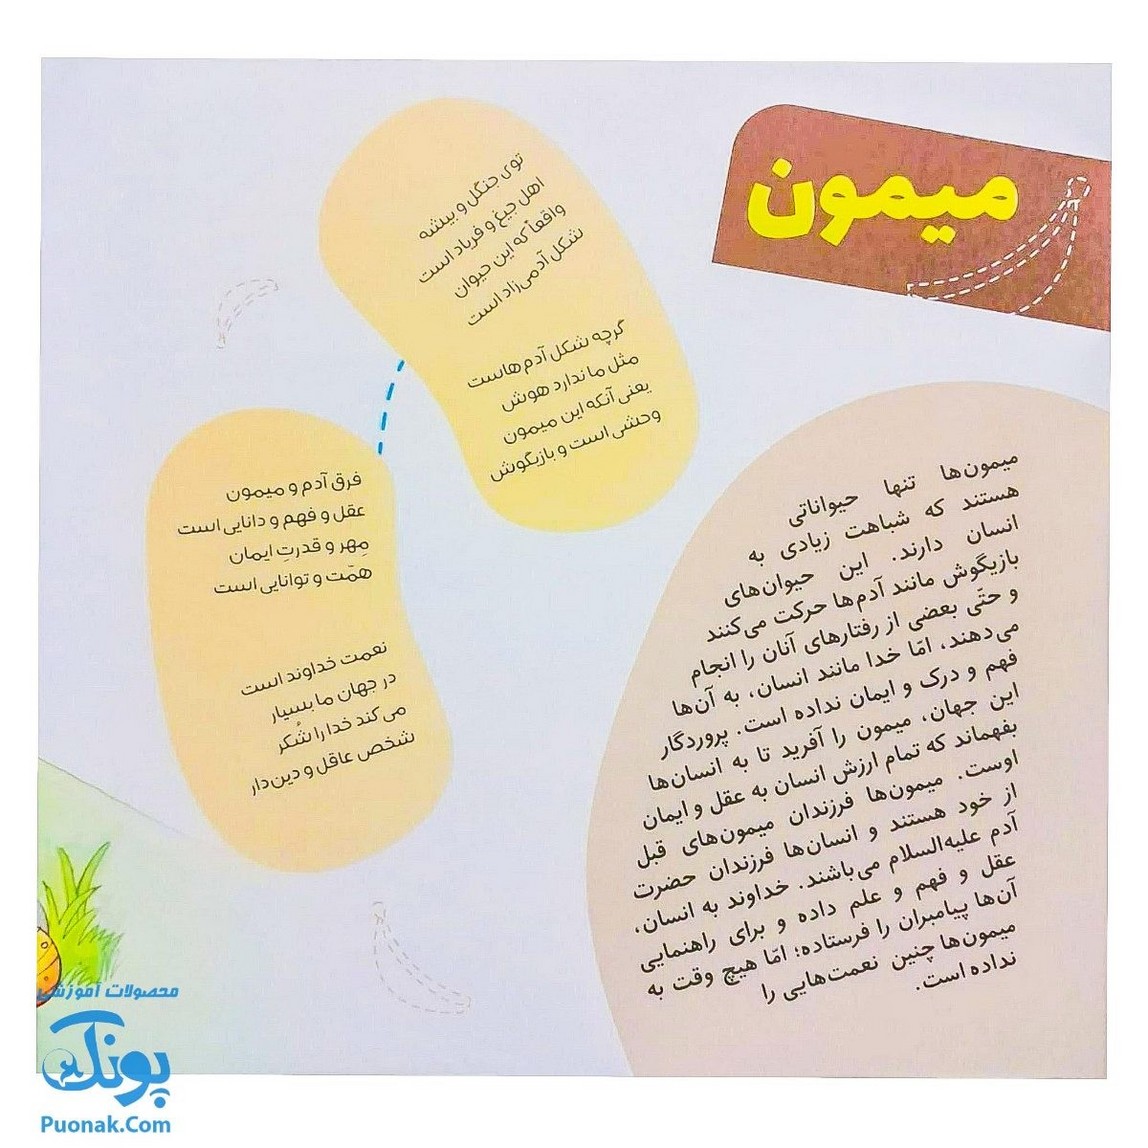 میمون
توی جنگل و بیشه
اهل جیغ و فریاد است
واقعاً که این حیوان
شکل آدمی‌زاد است
گرچه شکل آدم‌هاست
مثل ما ندارد هوش
یعنی آنکه این میمون
وحشی است و بازیگوش
فرق آدم و میمون
عقل و فهم و دانایی است
مِهر و قدرتِ ایمان
همّت و توانایی است
نعمت خداوند است
در جهان ما بسیار
می‌کند خدا را شُکر
شخص عاقل و دین‌دار
میمون‌ها تنها حیواناتی
هستند که شباهت زیادی به
انسان دارند. این حیوان‌های
بازیگوش مانند آدم‌ها حرکت می‌کنند
و حتّی بعضی از رفتارهای آنان را انجام
می‌دهند، امّا خدا مانند انسان، به آن‌ها
فهم و درک و ایمان نداده است. پروردگار
این جهان، میمون را آفرید تا به انسان‌ها
بفهماند که تمام ارزش انسان به عقل و ایمان
اوست. میمون‌ها فرزندان میمون‌های قبل
از خود هستند و انسان‌ها فرزندان حضرت
آدم علیه‌السلام می‌باشند. خداوند به انسان،
عقل و فهم و علم داده و برای راهنمایی
آن‌ها پیامبران را فرستاده؛ امّا هیچ وقت به
میمون‌ها چنین نعمت‌هایی را
نداده است.
محصولات آموزشی
پونک
Puonak.Com